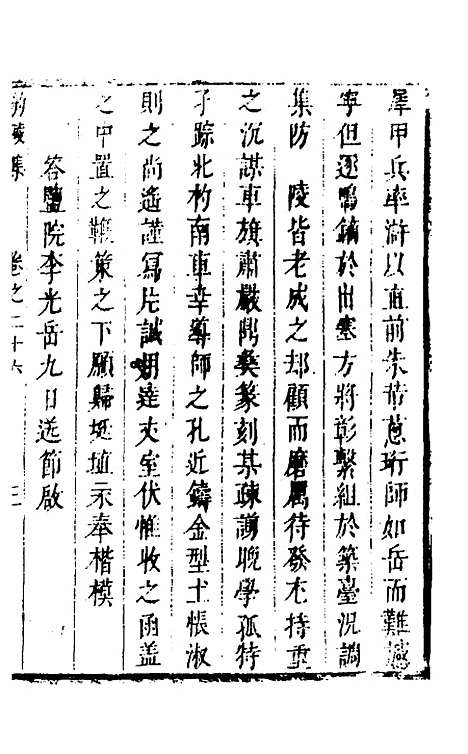 犀甲兵車滸以直前朱芾蔥珩師如岳而難撼
寧但逐鳴鏑於出塞方將彰繫組於築臺況調
集防　陵皆老成之却顧而磨厲待發尤持重
之沉謀車旗肅嚴鼎彝篆刻某疎謭晚學孤特
孑踪北杓南車幸導師之孔近鑄金型土悵淑
則之尚遙謹寫片誠明達夾室伏惟收之函蓋
之中置之鞭策之下願歸埏埴示奉楷模
答鹽院李光岳九日送節啟
集　卷之二十六　三